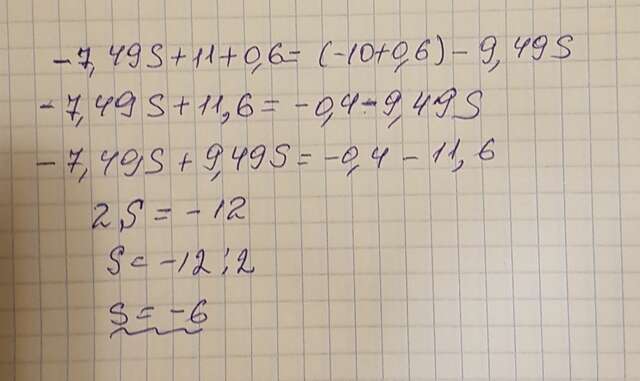 -7,49S+11+0,6=(-10+0,6)-9,49S
-7,49S+11,6=-0,4-9,49S
-7,49S+9,49S=-0,4-11,6
2S=-12
S=-12:2
S=-6